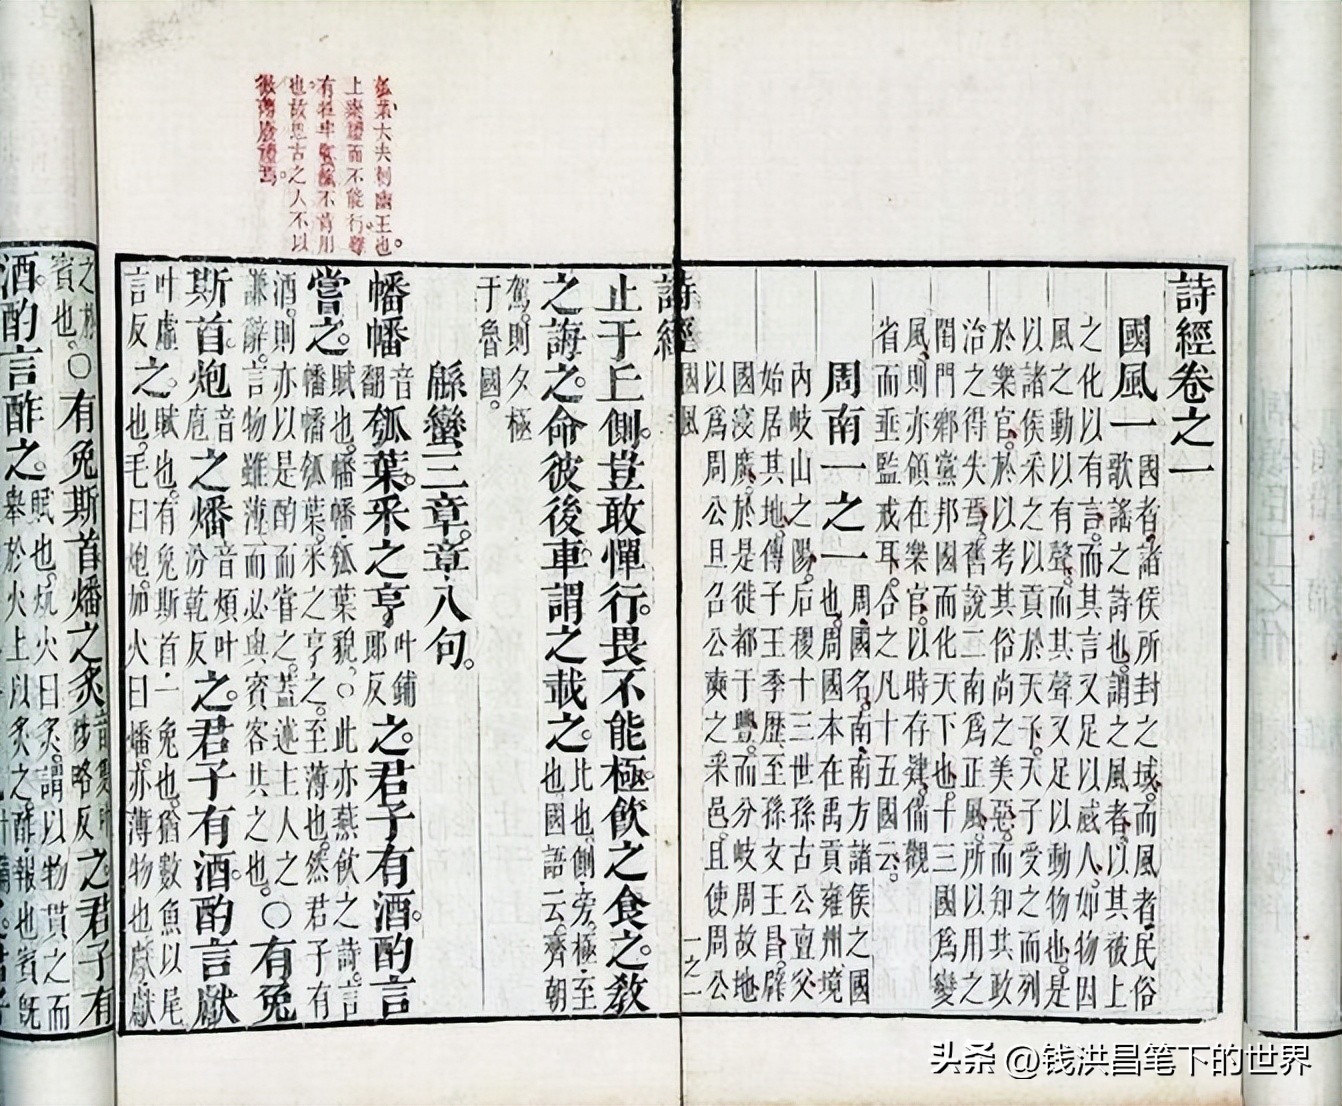 詩經卷之一
國風一 國者。諸侯所封之域。而風者。民俗
歌謠之詩也。謂之風者。以其被上
之化以有言。而其言又足以感人。如物因
風之動以有聲。而其聲又足以動物也。是
以諸侯采之以貢於天子。天子受之而列
於樂官。於以考其俗尚之美惡。而知其政
治之得失焉。舊說二南爲正風。所以用之
閨門鄉黨邦國而化天下也。十三國爲變
風。則亦領在樂官。以時存肄。備觀
省而垂監戒耳。合之凡十五國云。
周南一之一 周。國名。南。南方諸侯之國
也。周國本在禹貢雍州境
內岐山之陽。后稷十三世孫古公亶父
始居其地。傳子王季歷。至孫文王昌。辟
國寖廣。於是徙都于豐。而分岐周故地
以爲周公旦召公奭之采邑。且使周公
詩經 國風 一之一
止于丘側。豈敢憚行。畏不能極。飲之食之。敎
之誨之。命彼後車。謂之載之。比也。側。旁。極。至
也。國語云。齊朝
駕。則夕極
于魯國。
緜蠻三章。章八句。
幡幡音翻瓠葉。采之亨叶鋪郎反之。君子有酒。酌言
嘗之。賦也。幡幡。瓠葉貌。○此亦燕飲之詩。言
幡幡瓠葉。采之亨之。至薄也。然君子有
酒。則亦以是酌而嘗之。蓋述主人之
謙辭。言物雖薄而必與賓客共之也。○有兔
斯首。炮音庖之燔音煩叶汾乾反之。君子有酒。酌言獻
叶虛言反之。賦也。有兔斯首。一兔也。猶數魚以尾
也。毛曰炮。加火曰燔。亦薄物也。獻。獻
之於
賓也。○有兔斯首。燔之炙之。君子有
酒。酌言酢之。賦也。炕火曰炙。謂以物貫之而
舉於火上以炙之。酢。報也。賓旣
瓠葉大夫刺幽王也。
上棄禮而不能行。雖
有牲牢饔餼不肯用
也。故思古之人不以
微薄廢禮焉。
头条 @钱洪昌笔下的世界